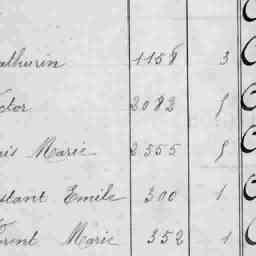 athurin 1158 3
ctor 2082 5
is Marie 2555 5
stant Emile 300 1
rent Marie 352 1